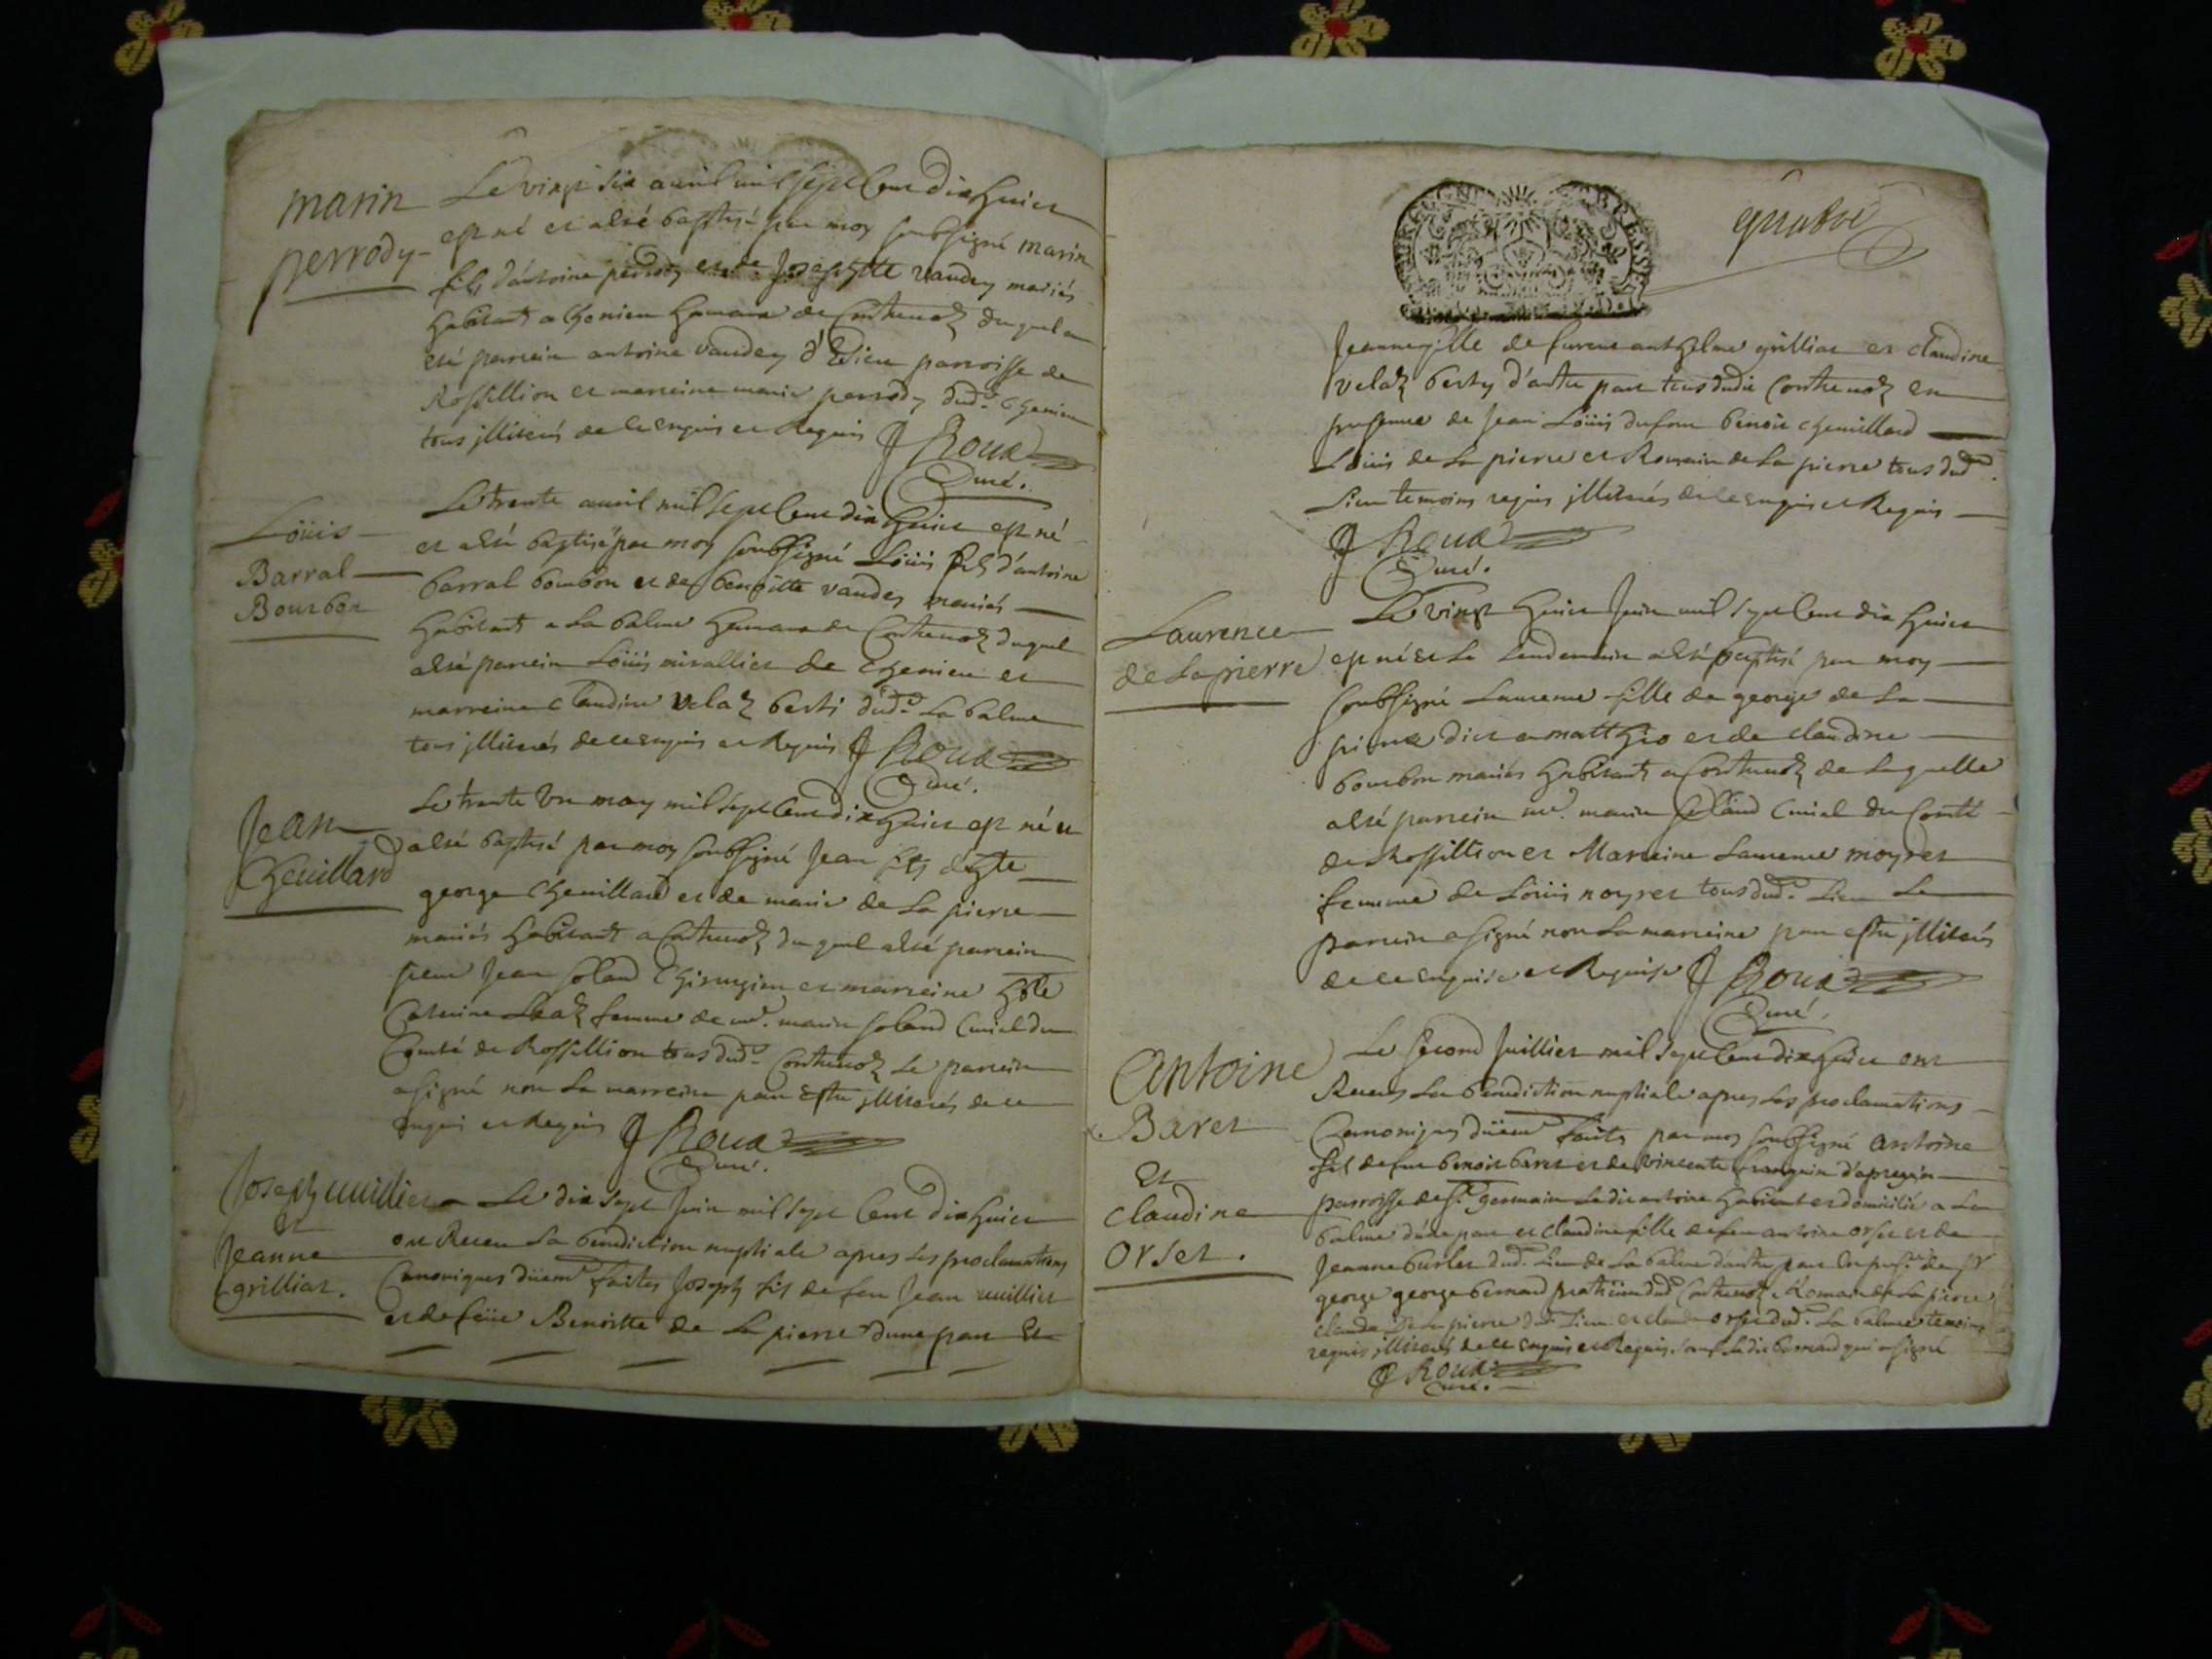 marin
perrody
Le vingt six avril mil sept cent dix huict
est né et a esté baptisé par moy soubsigné marin
fils d'antoine perrody et de Josephte vandey mariés
habitant a Chenieu hameau de Conthenod duquel a
esté parrein antoine vandey d'
parroisse de
Rossillion et marreine marie perrody dud. Chenieu
tous illiterés de ce enquis et Requis J Roux
Curé.
Loüis
Barral
Bourbon
Le trente avril mil sept cent dix huict est né
et a esté baptisé par moy soubsigné Loüis fils d'antoine
barral bourbon et de benoitte vandey mariés
habitant a La balme hameau de Conthenod duquel
a esté parrein Loüis mirallier de Chenieu et
marreine Claudine velaz berti dud. La balme
tous illiterés de ce enquis et Requis J Roux
Curé.
Jean
Cheuillard
Le trente un may mil sept cent dix huict est né et
a esté baptisé par moy soubsigné Jean fils d'hble
george Cheuillard et de marie de La pierre
mariés habitant a Conthenod duquel a esté parrein
sieur Jean soland Chirurgien et marreine hble
Caterine femme de me. marin soland Curial du
Comté de Rossillion tous dud. Conthenod Le parrein
a signé non La marreine pour estre illiterés de ce
enquis et Requis J Roux
Curé.
Joseph uuillier
Et
Jeanne
grilliat.
Le dix sept Juin mil sept cent dix huict
ont Receu La benediction nuptiale apres Les proclamations
Canoniques düem. faites Joseph fils de feu Jean uuillier
et de feüe Benoitte de La pierre d'une part Et
BRESSE
Jeanne fille de anthelme grilliat et claudine
velaz berty d'autre part tous dudit Conthenod en
presence de Jean Loüis dufour benoit cheuillard
Loüis de La pierre et Romain de La pierre tous dud.
Lieu temoins requis illiterés de ce enquis et Requis
J Roux
Curé.
Laurence
de La pierre
Le vingt huict Juin mil sept cent dix huict
est née et Le Lendemain a esté baptisé par moy
soubsigné Laurence fille de george de La
pierre dit a matthio et de claudine
bourbon mariés habitant a Conthenod de Laquelle
a esté parrein me. marin soland Curial du Comté
de Rossillion et Marreine Laurence moyret
femme de Loüis noyret tous dud. Lieu Le
parrein a signé non La marreine pour estre illiterés
de ce enquise et Requise J Roux
Curé.
Antoine
Baret
Et
claudine
orset.
Le second Juillier mil sept cent dix huict ont
Receus La benediction nuptiale apres Les proclamations
Canoniques düem. faites par moy soubsigné antoine
fils de feu benoit baret et de vincente franquin d'apregin
parroisse de st. germain Ledit antoine habitant et domicilié a La
balme d'une part et claudine fille de feu antoine orset et de
Jeanne burlet dud. Lieu de La balme d'autre part En pnce. de sr
george george bernard praticien dud. Conthenod, Romain de La pierre
claude De La pierre dud. Lieu et claude orset dud. La balme temoins
requis illiterés de ce enquis et Requis, sauf Ledit bernard qui a signé
J Roux
Curé.